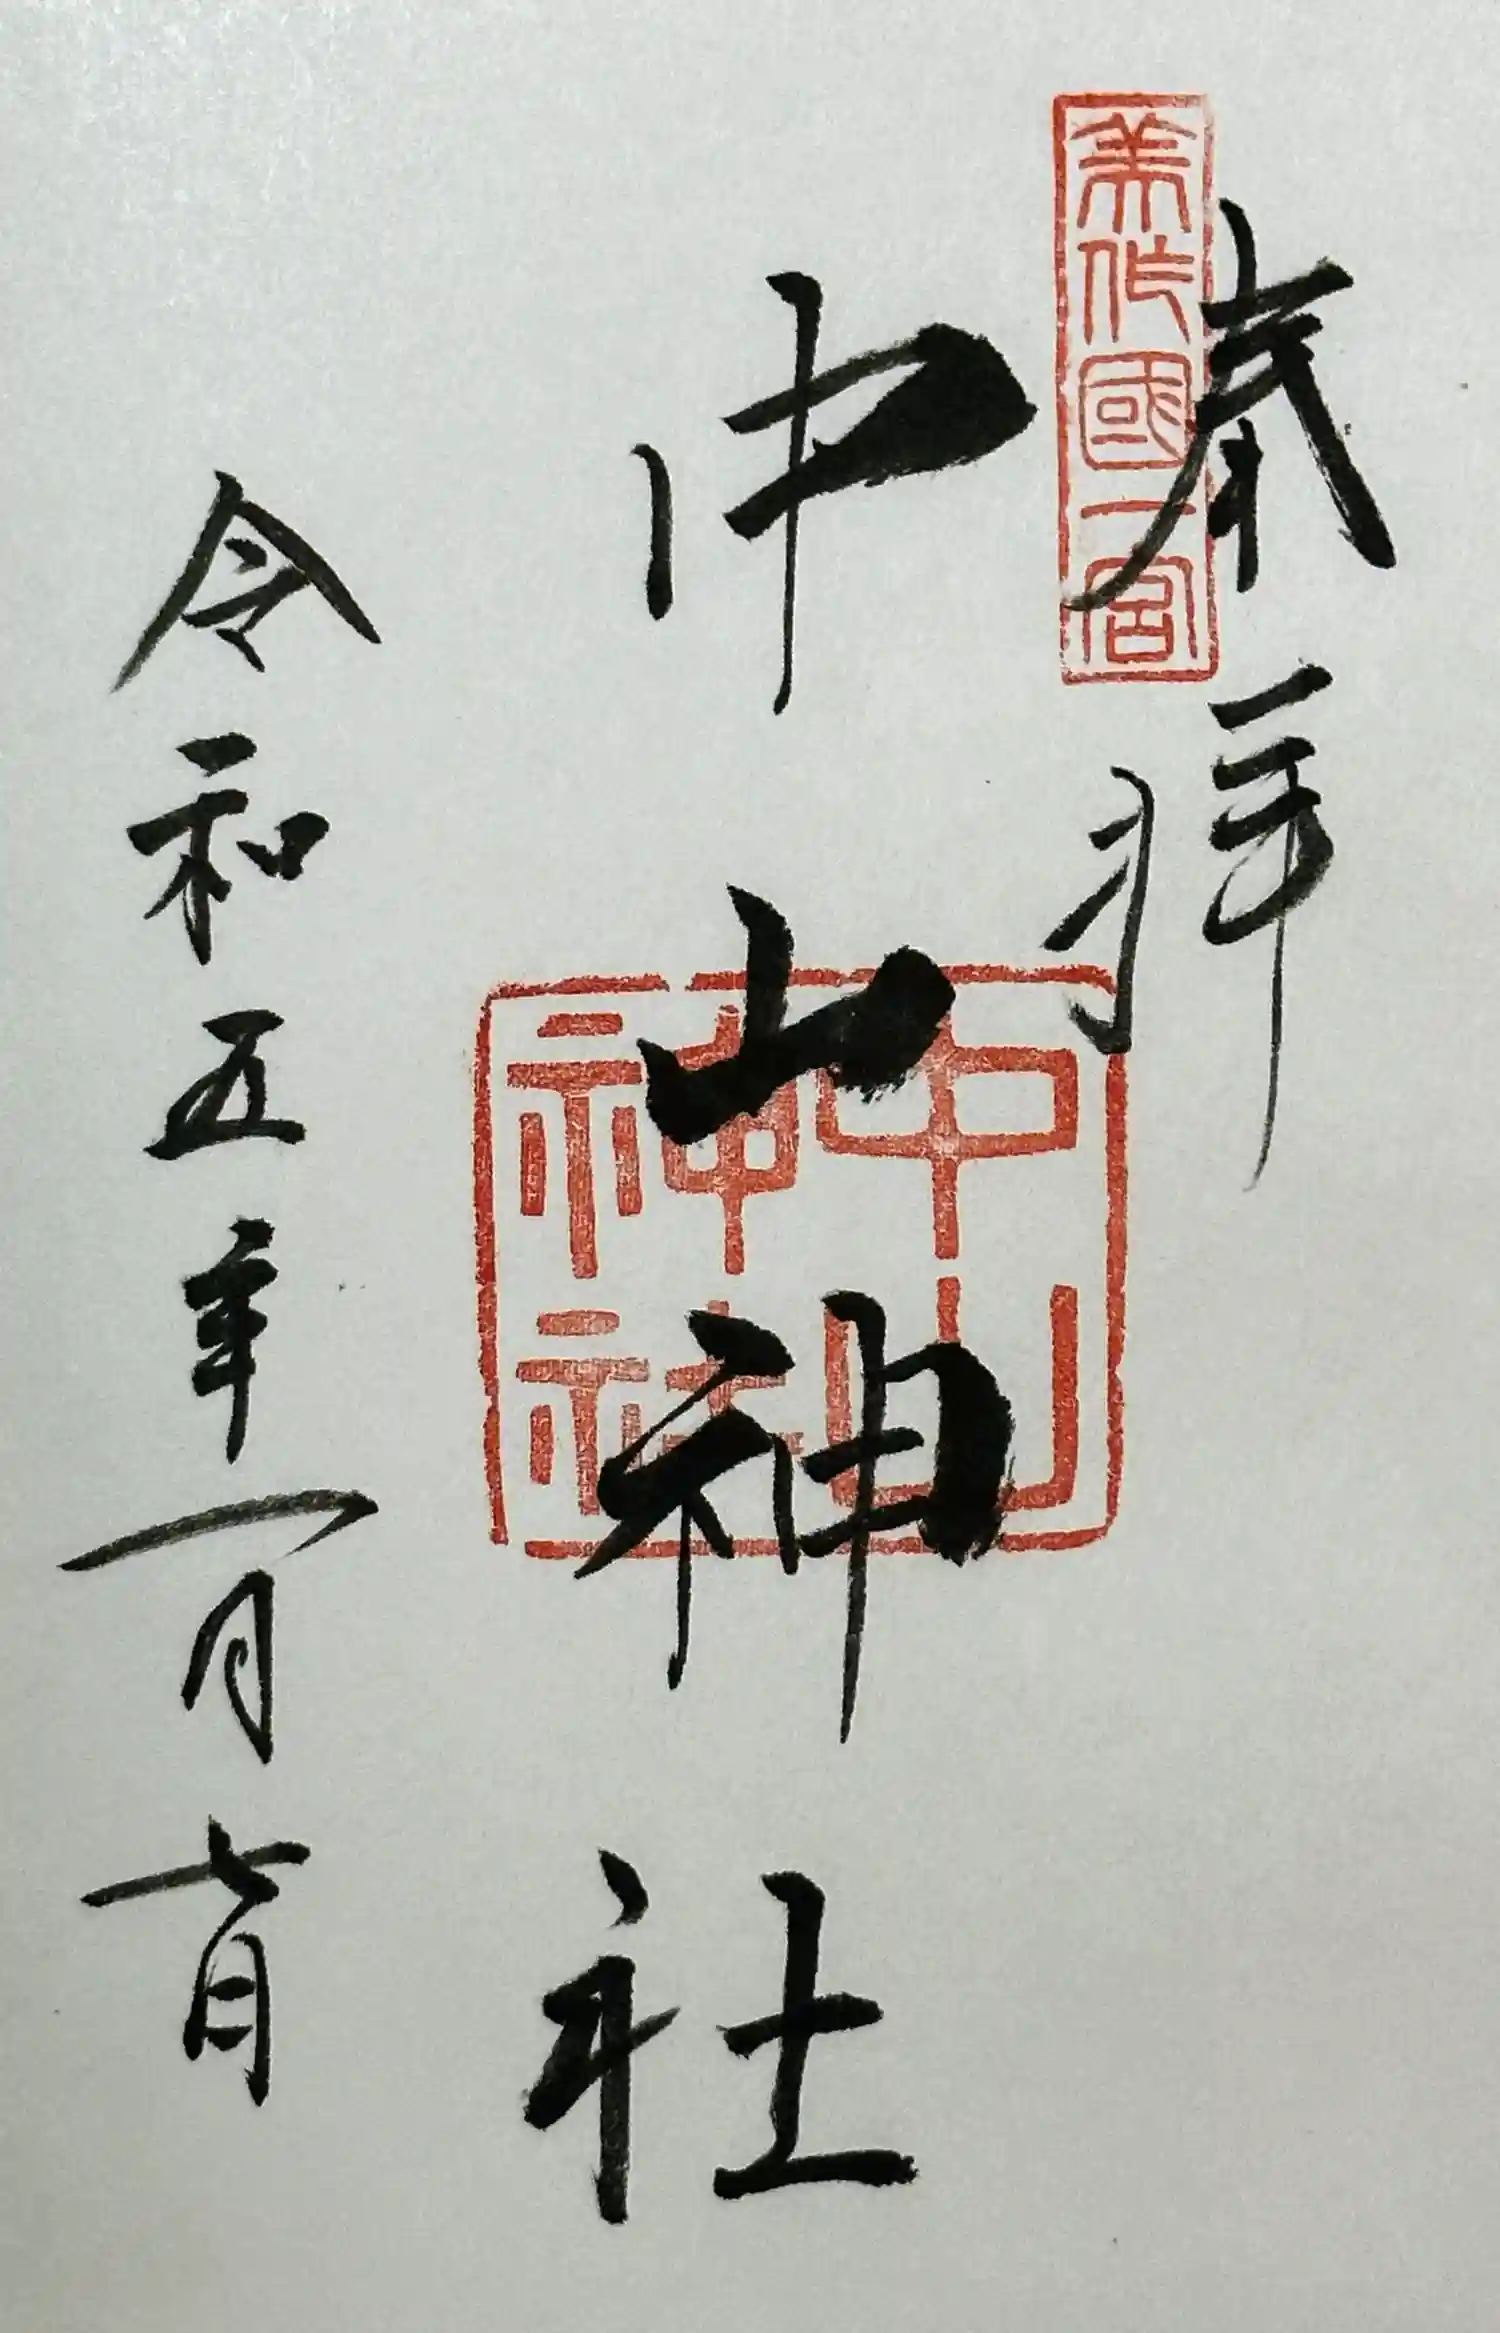 奉拝
美作國一宮
中山神社
中山神社
令和五年一月七日